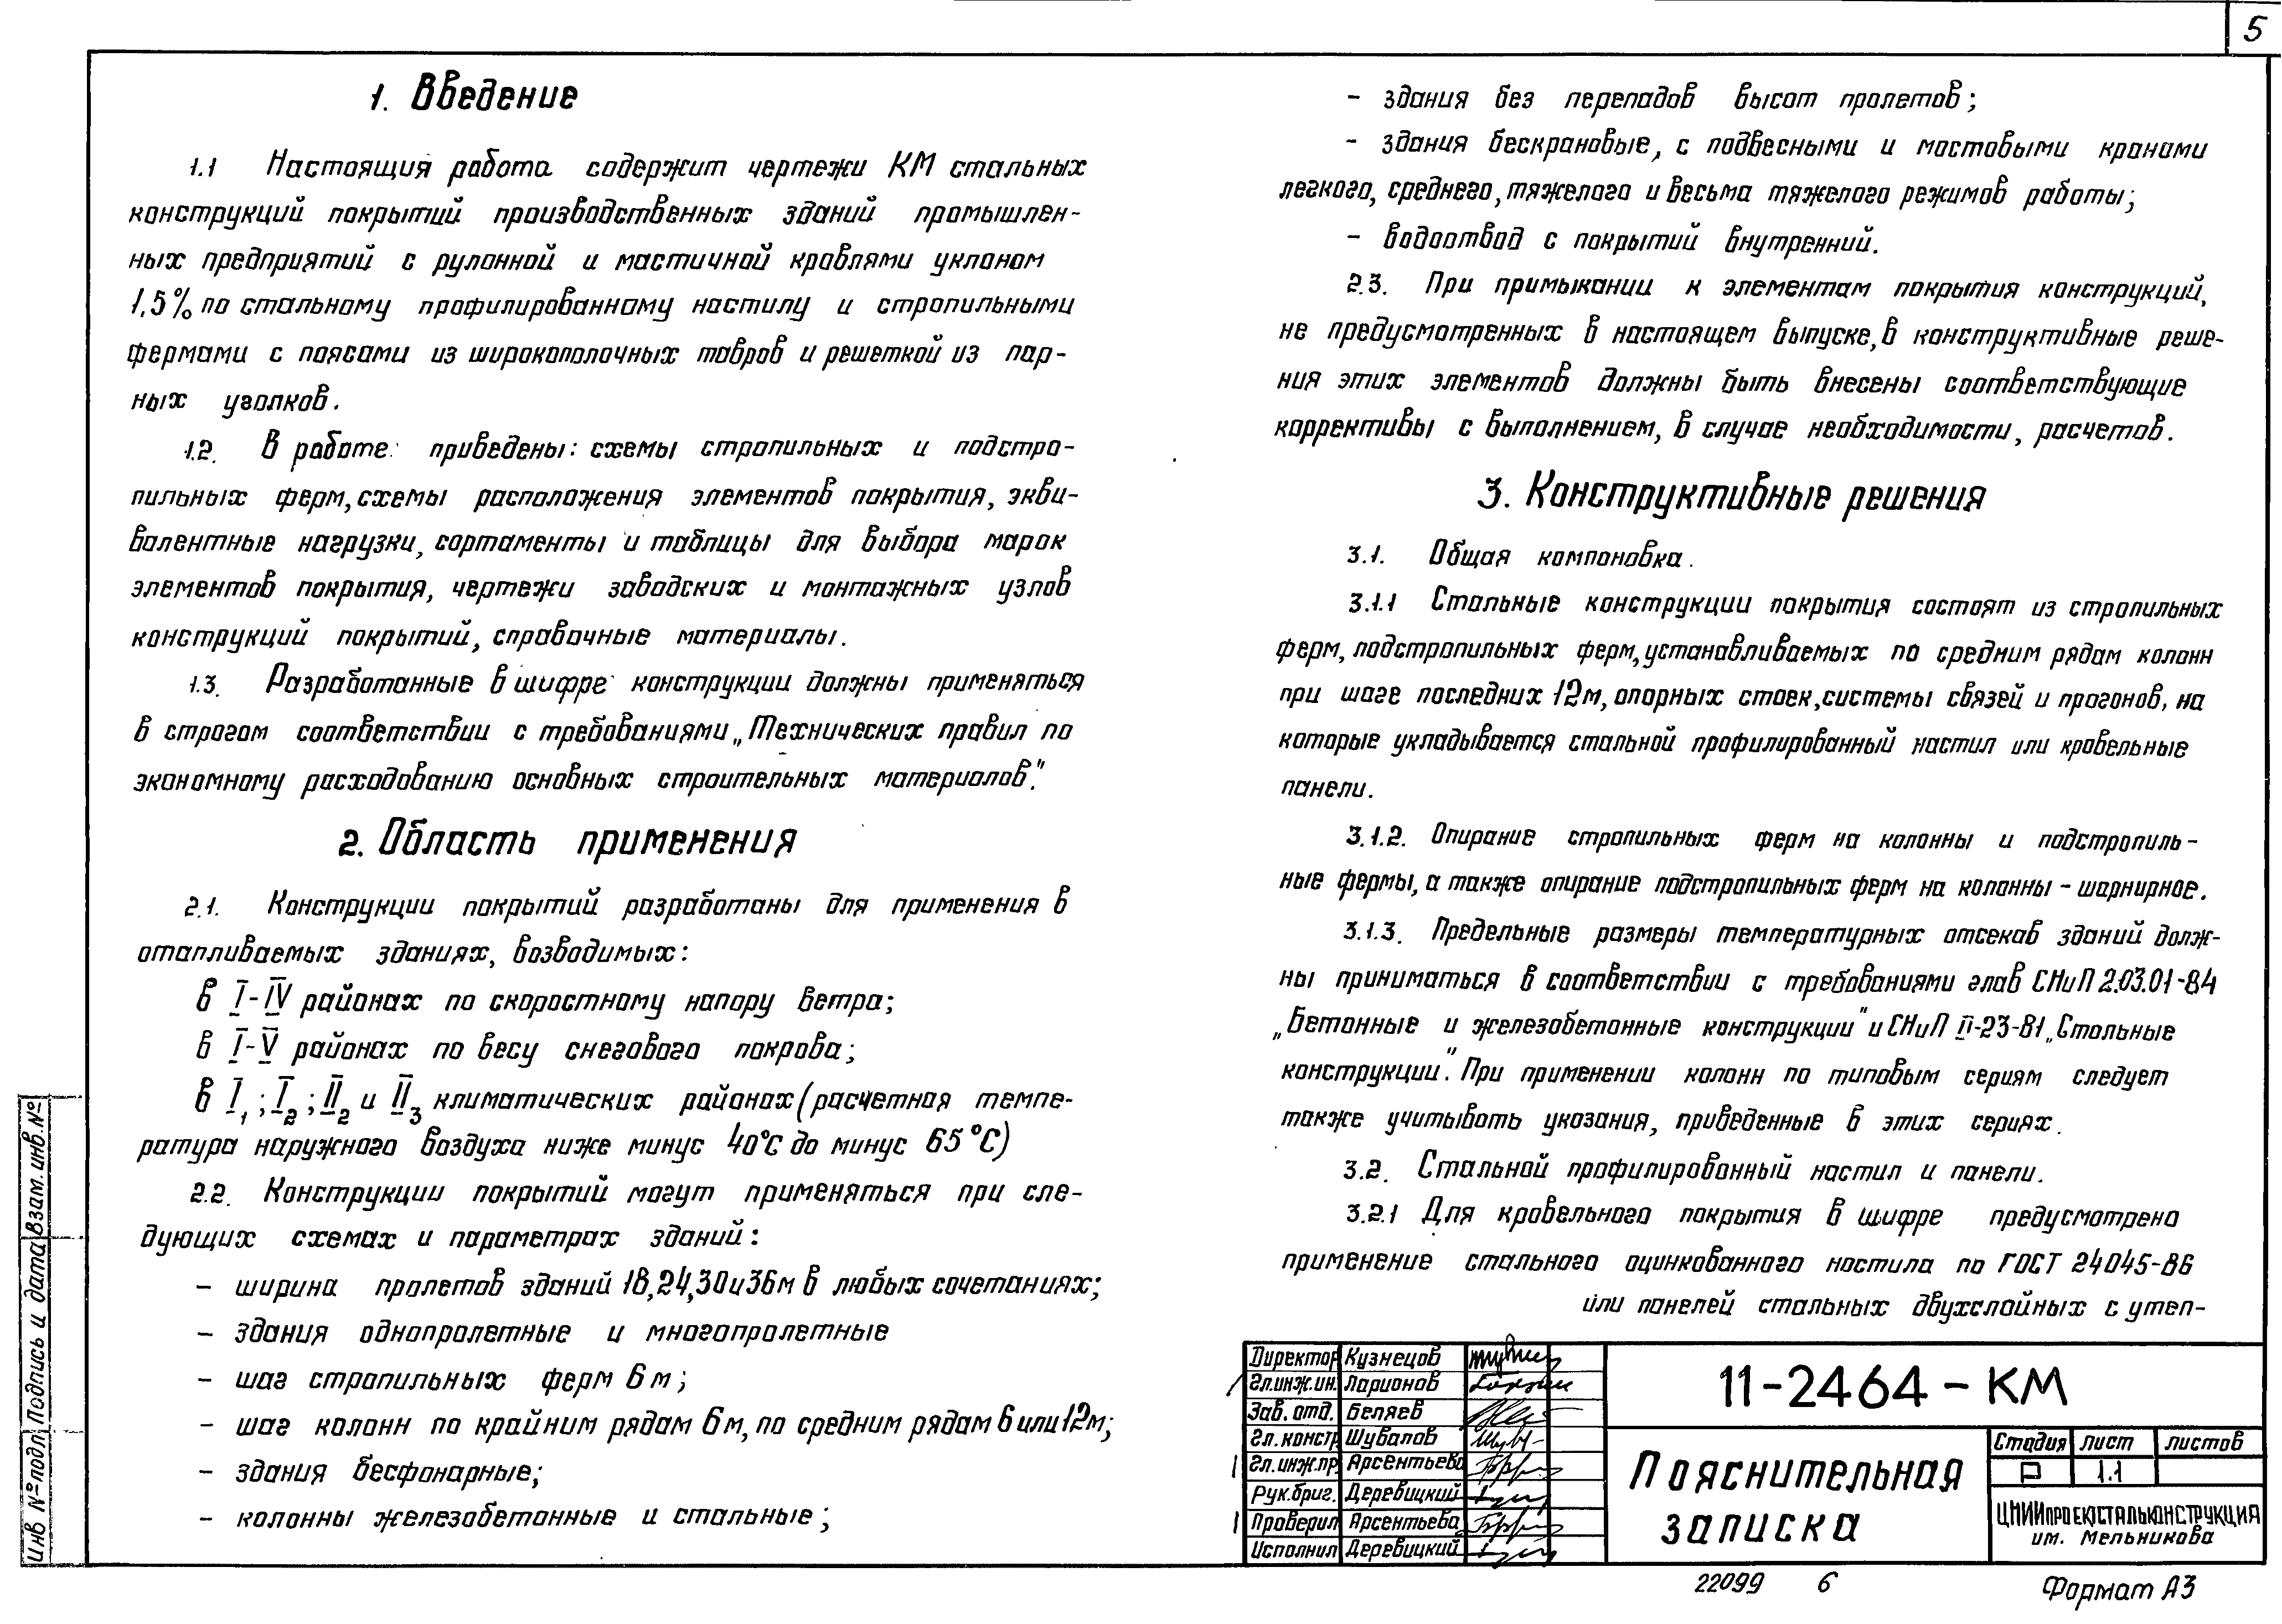 5
1. Введение
1.1 Настоящия работа содержит чертежи КМ стальных
конструкций покрытий производственных зданий промышлен-
ных предприятий с рулонной и мастичной кровлями уклоном
1,5% по стальному профилированному настилу и стропильными
фермами с поясами из широкополочных тавров и решеткой из пар-
ных уголков.
1.2. В работе приведены: схемы стропильных и подстро-
пильных ферм, схемы расположения элементов покрытия, экви-
валентные нагрузки, сортаменты и таблицы для выбора марок
элементов покрытия, чертежи заводских и монтажных узлов
конструкций покрытий, справочные материалы.
1.3. Разработанные в шифре конструкции должны применяться
в строгом соответствии с требованиями „Технических правил по
экономному расходованию основных строительных материалов".
2. Область применения
2.1. Конструкции покрытий разработаны для применения в
отапливаемых зданиях, возводимых:
в I-IV районах по скоростному напору ветра;
в I-V районах по весу снегового покрова;
в I₁; I₂; II₂ и II₃ климатических районах (расчетная темпе-
ратура наружного воздуха ниже минус 40°С до минус 65°С)
2.2. Конструкции покрытий могут применяться при сле-
дующих схемах и параметрах зданий:
- ширина пролетов зданий 18, 24, 30 и 36 м в любых сочетаниях;
- здания однопролетные и многопролетные
- шаг стропильных ферм 6 м;
- шаг колонн по крайним рядам 6 м, по средним рядам 6 или 12 м;
- здания бесфонарные;
- колонны железобетонные и стальные;
- здания без перепадов высот пролетов;
- здания бескрановые, с подвесными и мостовыми кранами
легкого, среднего, тяжелого и весьма тяжелого режимов работы;
- водоотвод с покрытий внутренний.
2.3. При примыкании к элементам покрытия конструкций,
не предусмотренных в настоящем выпуске, в конструктивные реше-
ния этих элементов должны быть внесены соответствующие
коррективы с выполнением, в случае необходимости, расчетов.
3. Конструктивные решения
3.1. Общая компоновка.
3.1.1 Стальные конструкции покрытия состоят из стропильных
ферм, подстропильных ферм, устанавливаемых по средним рядам колонн
при шаге последних 12 м, опорных стоек, системы связей и прогонов, на
которые укладывается стальной профилированный настил или кровельные
панели.
3.1.2. Опирание стропильных ферм на колонны и подстропиль-
ные фермы, а также опирание подстропильных ферм на колонны - шарнирное.
3.1.3. Предельные размеры температурных отсеков зданий долж-
ны приниматься в соответствии с требованиями глав СНиП 2.03.01-84
„Бетонные и железобетонные конструкции" и СНиП II-23-81 „Стальные
конструкции". При применении колонн по типовым сериям следует
также учитывать указания, приведенные в этих сериях.
3.2. Стальной профилированный настил и панели.
3.2.1 Для кровельного покрытия в шифре предусмотрено
применение стального оцинкованного настила по ГОСТ 24045-86
или панелей стальных двухслойных с утеп-
Директор Кузнецов
Гл.инж.ин. Ларионов
Зав. отд. Беляев
Гл. констр Шувалов
Гл.инж.пр. Арсентьева
Рук.бриг. Деревицкий
Проверил Арсентьева
Исполнил Деревицкий
11-2464-КМ
Пояснительная
записка
Стадия лист листов
Р 1.1
ЦНИИПРОЕКТСТАЛЬКОНСТРУКЦИЯ
им. Мельникова
22099 6
Формат А3
Инв №подл Подпись и дата Взам. инв. №